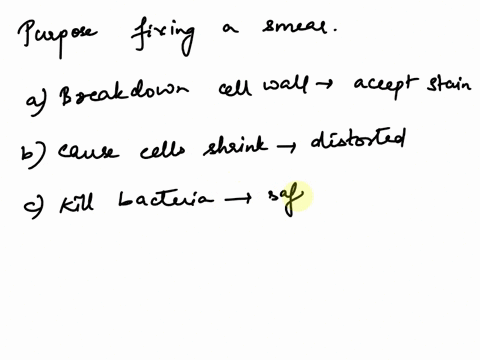 Purpose fixing a smear.
a) Breakdown cell wall → accept stain
b) cause cells shrink → distorted
c) Kill bacteria → saf